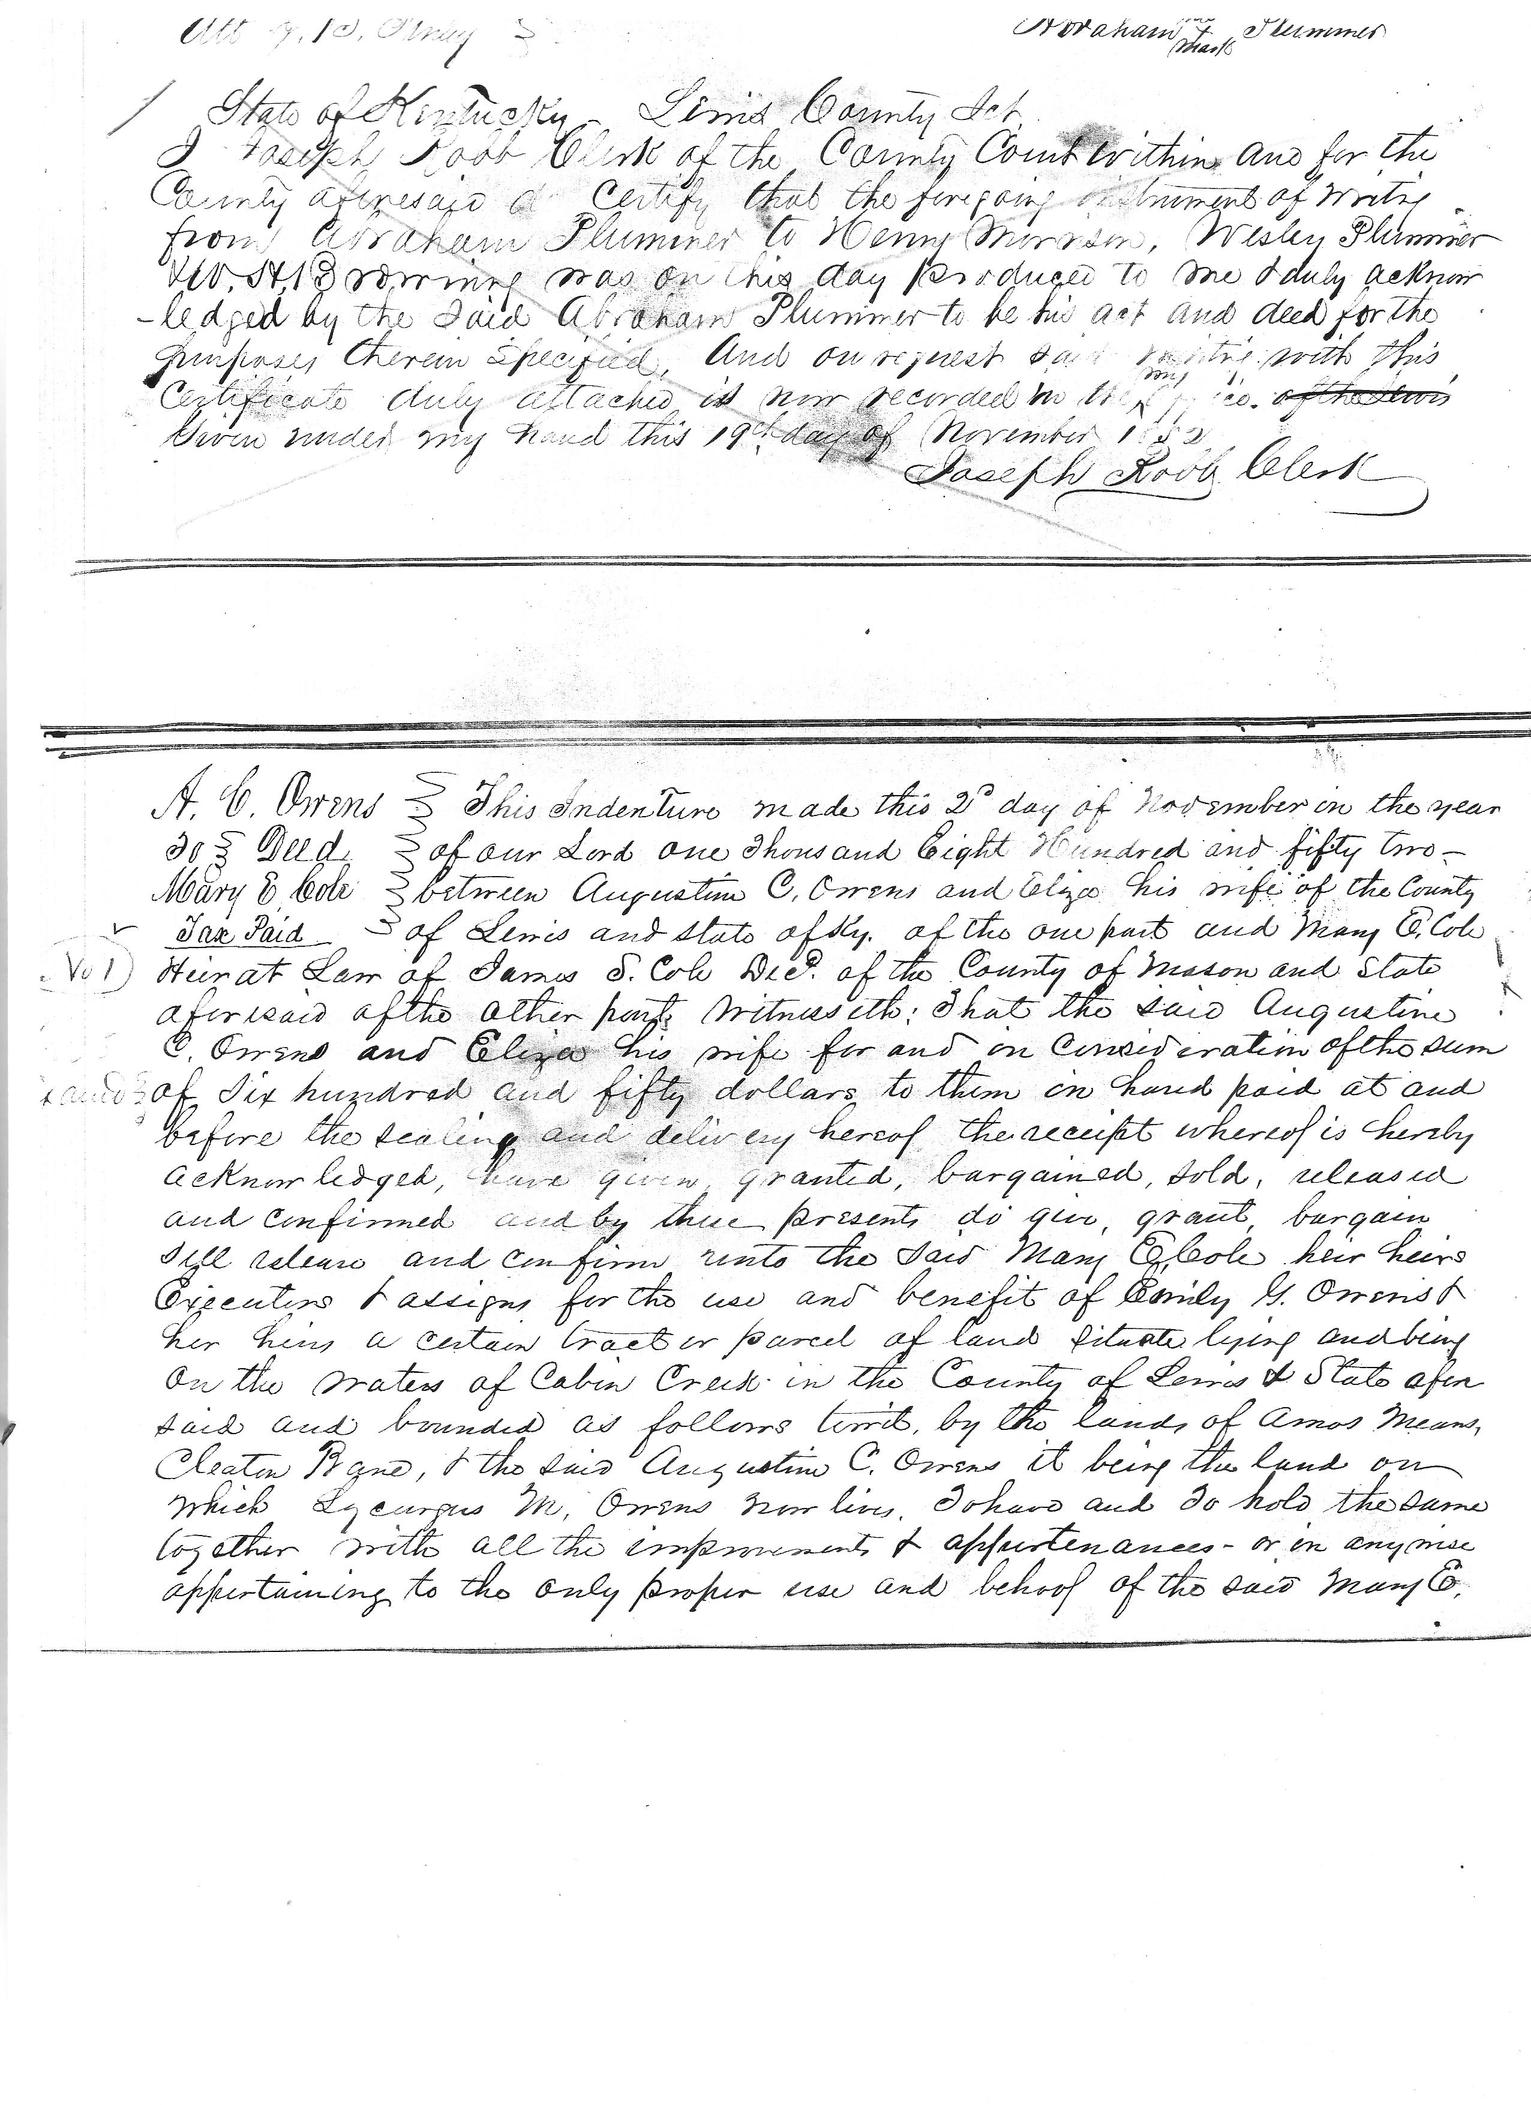 Abraham + Plummer
mark
State of Kentucky - Lewis County Sct
I Joseph Robb Clerk of the County Court within and for the
County aforesaid do Certify that the foregoing instrument of writing
from Abraham Plummer to Henry Morrison, Wesley Plummer
& W. H. Browning was on this day produced to me & duly acknow
-ledged by the said Abraham Plummer to be his act and deed for the
purposes therein specified, And on request said writing with this
Certificate duly attached is now recorded in my office. of the Lewis
Given under my hand this 19th day of November 1852
Joseph Robb Clerk
A. C. Owens This Indenture made this 2d day of November in the year
To Deed of our Lord one Thousand Eight Hundred and fifty two -
Mary E Cole between Augustine C. Owens and Eliza his wife of the County
Tax Paid of Lewis and state of Ky. of the one part and Mary E. Cole
No 1 Heir at Law of James S. Cole Decd. of the County of Mason and State
aforesaid of the other part, Witnesseth: That the said Augustine
C. Owens and Eliza his wife for and in Consideration of the sum
of Six hundred and fifty dollars to them in hand paid at and
before the sealing and delivery hereof the receipt whereof is hereby
acknowledged, have given, granted, bargained, sold, released
and confirmed and by these presents do give, grant, bargain
sell release and confirm unto the said Mary E. Cole heir heirs
Executors & assigns for the use and benefit of Emily G. Owens &
her heirs a certain tract or parcel of land situate lying and being
On the waters of Cabin Creek in the County of Lewis & State afore
said and bounded as follows towit, by the lands of Amos Means,
Cleaton Bane, & the said Augustine C. Owens it being the land on
which Lycurgus M. Owens now lives. To have and To hold the same
together with all the improvements & appertenances - or in any wise
appertaining to the only proper use and behoof of the said Mary E.